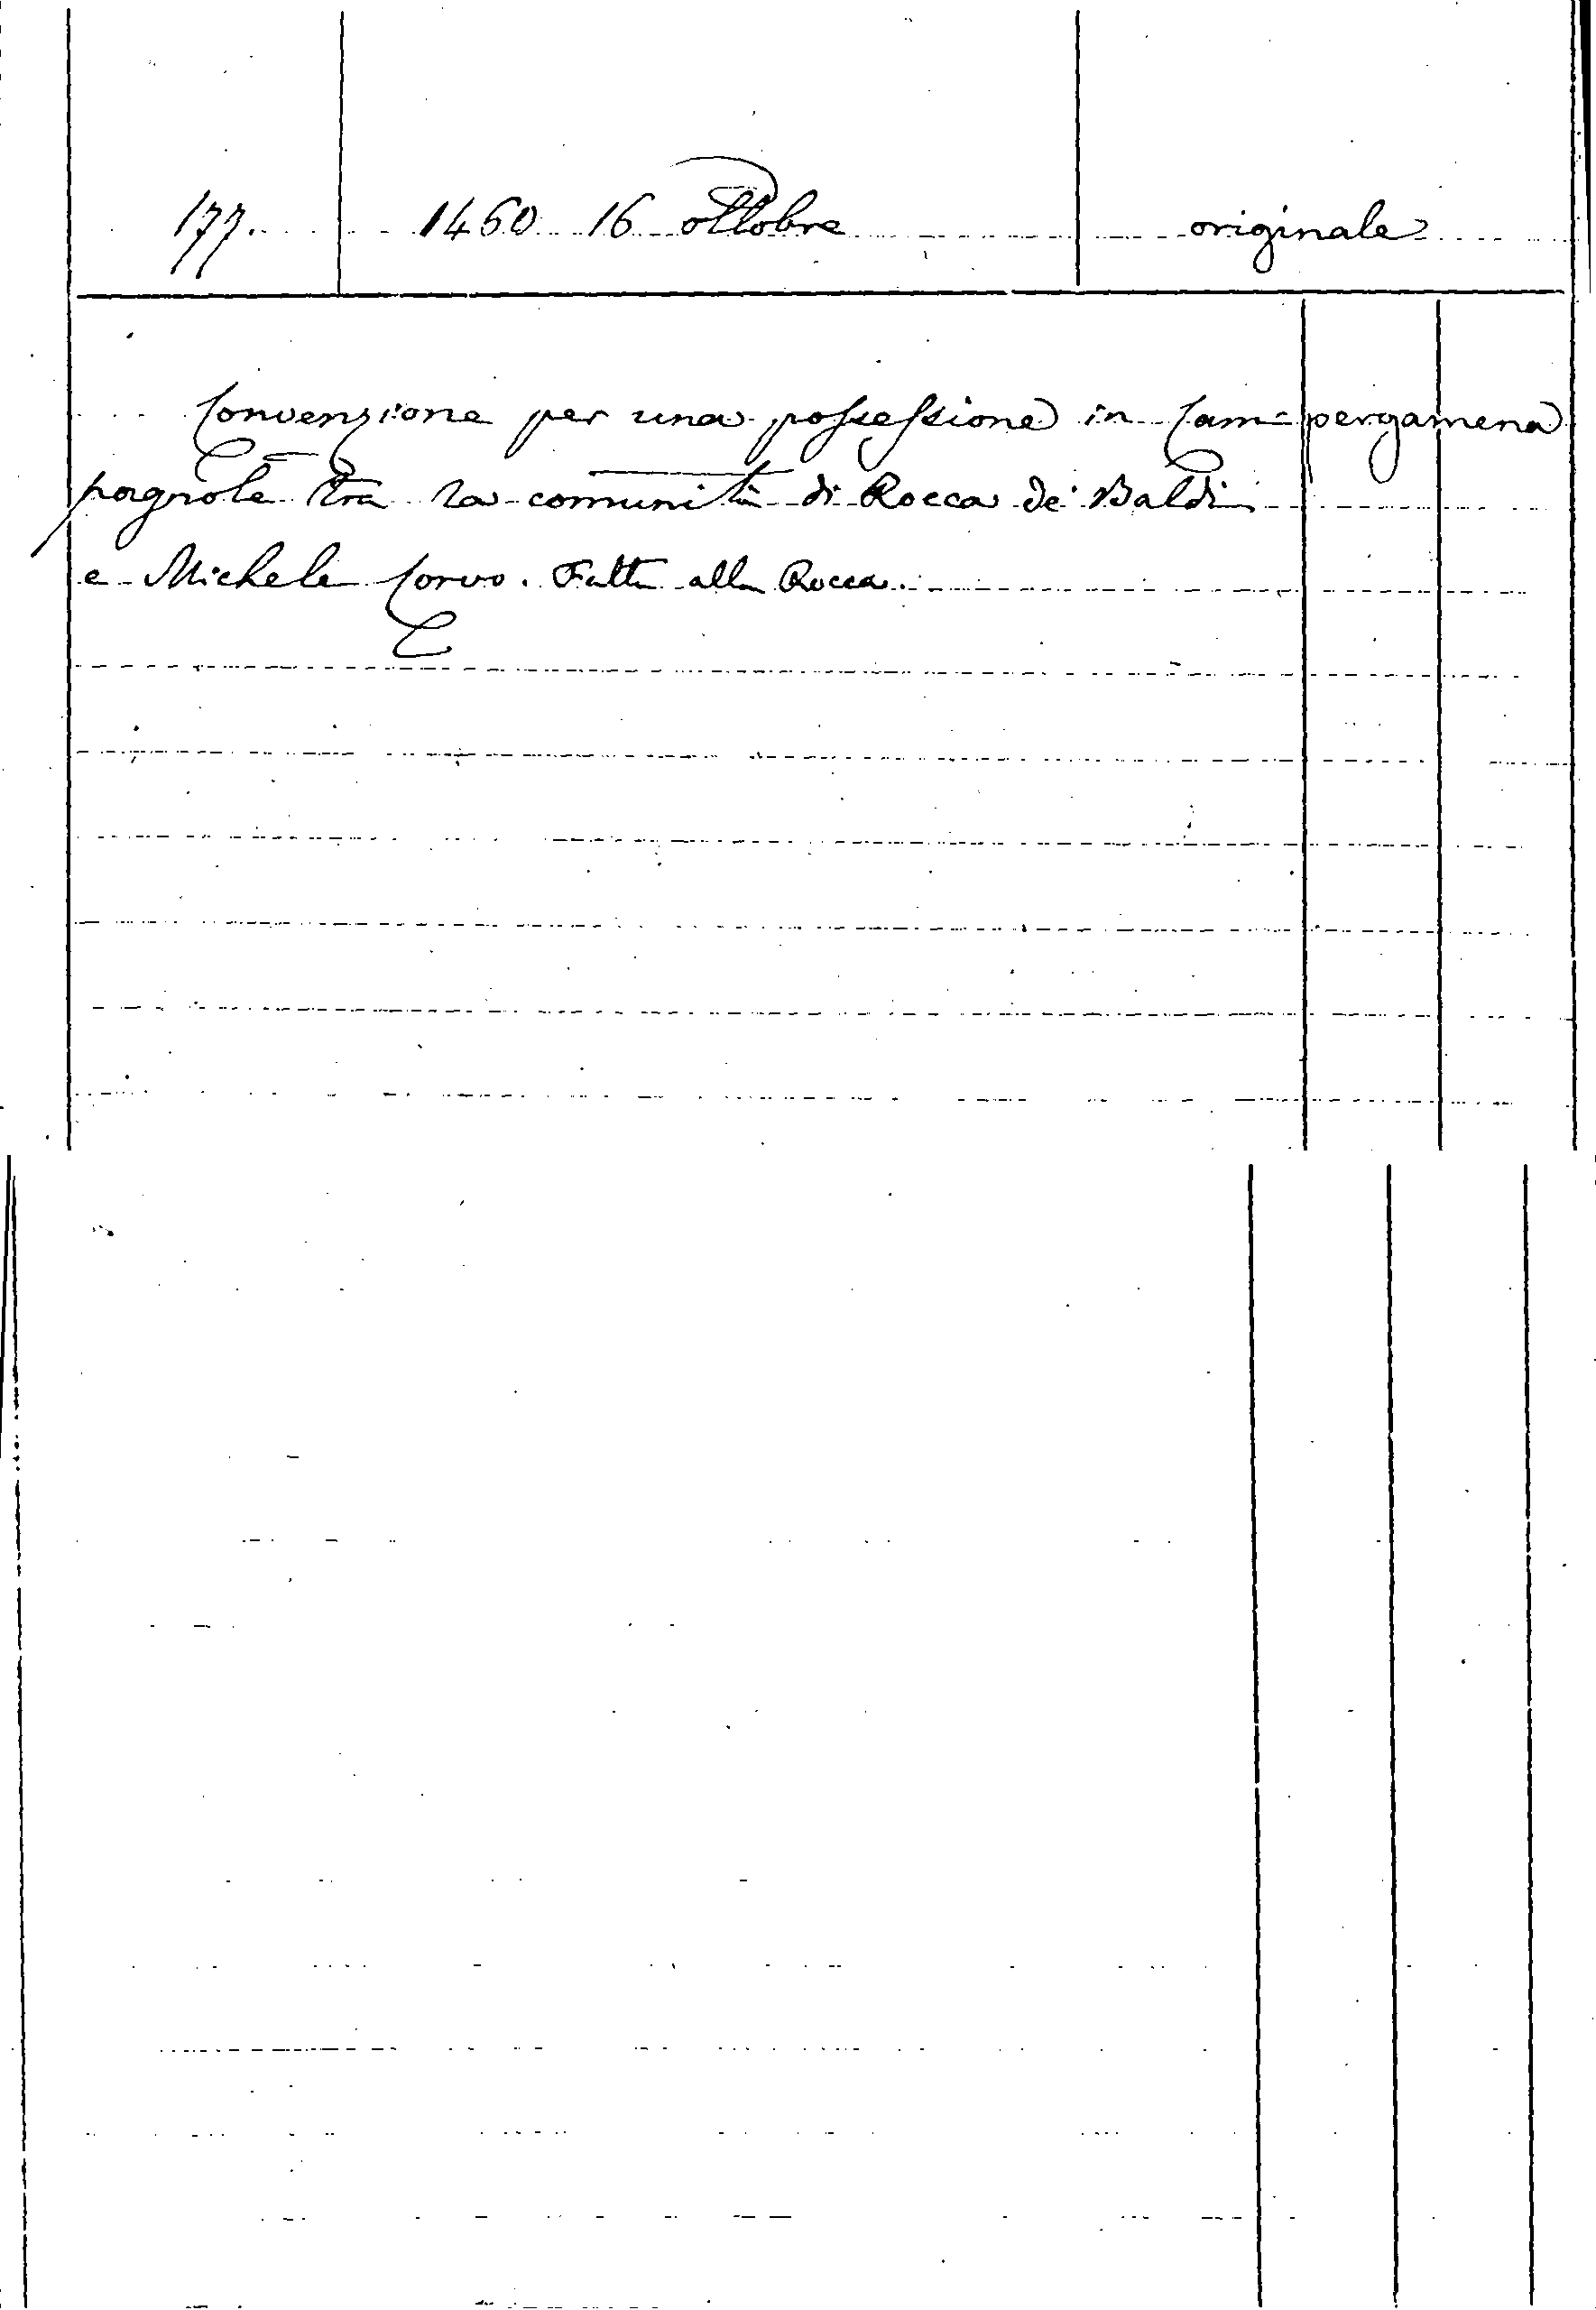 177. 1460 16 ottobre originale
Convenzione per una possessione in Cam= pergamena
pagnole tra la comunità di Rocca de' Baldi
e Michele Corvo. Fatta alla Rocca.